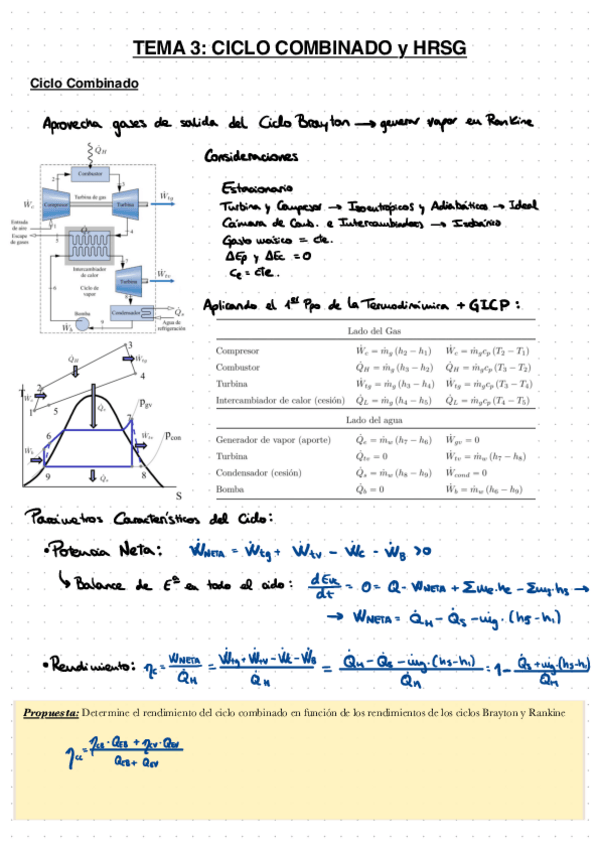 TEMA 3: CICLO COMBINADO y HRSG
Ciclo Combinado
Aprovecha gases de salida del Ciclo Brayton → generar vapor en Rankine
Q̇H
Combustor
2
3
Ẇc
Compresor
Turbina de gas
Turbina
Ẇtg
Entrada de aire
1
4
Escape de gases
5
Intercambiador de calor
7
Turbina
Ẇtv
6
Ciclo de vapor
8
Bomba
Condensador
Q̇s
Ẇb
9
Agua de refrigeración
Consideraciones
Estacionario
Turbina y Compresor → Isoentrópicos y Adiabáticos → Ideal
Cámara de Comb. e Intercambiadores → Isobárico
Gasto másico = cte.
ΔEp y ΔEc = 0
Aplicando el 1er Ppo de la Termodinámica + GICP :
Lado del Gas
Compresor Ẇc = ṁg (h2 − h1) Ẇc = ṁgcp (T2 − T1)
Combustor Q̇H = ṁg (h3 − h2) Q̇H = ṁgcp (T3 − T2)
Turbina Ẇtg = ṁg (h3 − h4) Ẇtg = ṁgcp (T3 − T4)
Intercambiador de calor (cesión) Q̇L = ṁg (h4 − h5) Q̇L = ṁgcp (T4 − T5)
Lado del agua
Generador de vapor (aporte) Q̇e = ṁw (h7 − h6) Ẇgv = 0
Turbina Q̇tv = 0 Ẇtv = ṁw (h7 − h8)
Condensador (cesión) Q̇s = ṁw (h8 − h9) Ẇcond = 0
Bomba Q̇b = 0 Ẇb = ṁw (h9 − h6)
T
Q̇H
3
Ẇtg
2
Ẇc
4
1
5
Q̇e
pgv
6
7
Ẇtv
pcon
Ẇb
9
Q̇s
8
S
Parámetros Característicos del Ciclo:
• Potencia Neta: ẆNETA = Ẇtg + Ẇtv − Ẇc − ẆB >0
↳ Balance de Eª en todo el ciclo: dEvc/dt = 0 = Q - WNETA + Σṁe.he − Σṁs.hs →
→ WNETA = Q̇H − Q̇s − ṁg . (h5 − h1)
• Rendimiento: ηc = WNETA/Q̇H = (Ẇtg + Ẇtv − Ẇc − ẆB)/Q̇H = (Q̇H − Q̇s − ṁg.(h5−h1))/Q̇H = 1 − (Q̇s + ṁg.(h5−h1))/Q̇H
Propuesta: Determine el rendimiento del ciclo combinado en función de los rendimientos de los ciclos Brayton y Rankine
ηcc = (ηCB · QCB + ηCV · QCV)/(QCB + QCV)